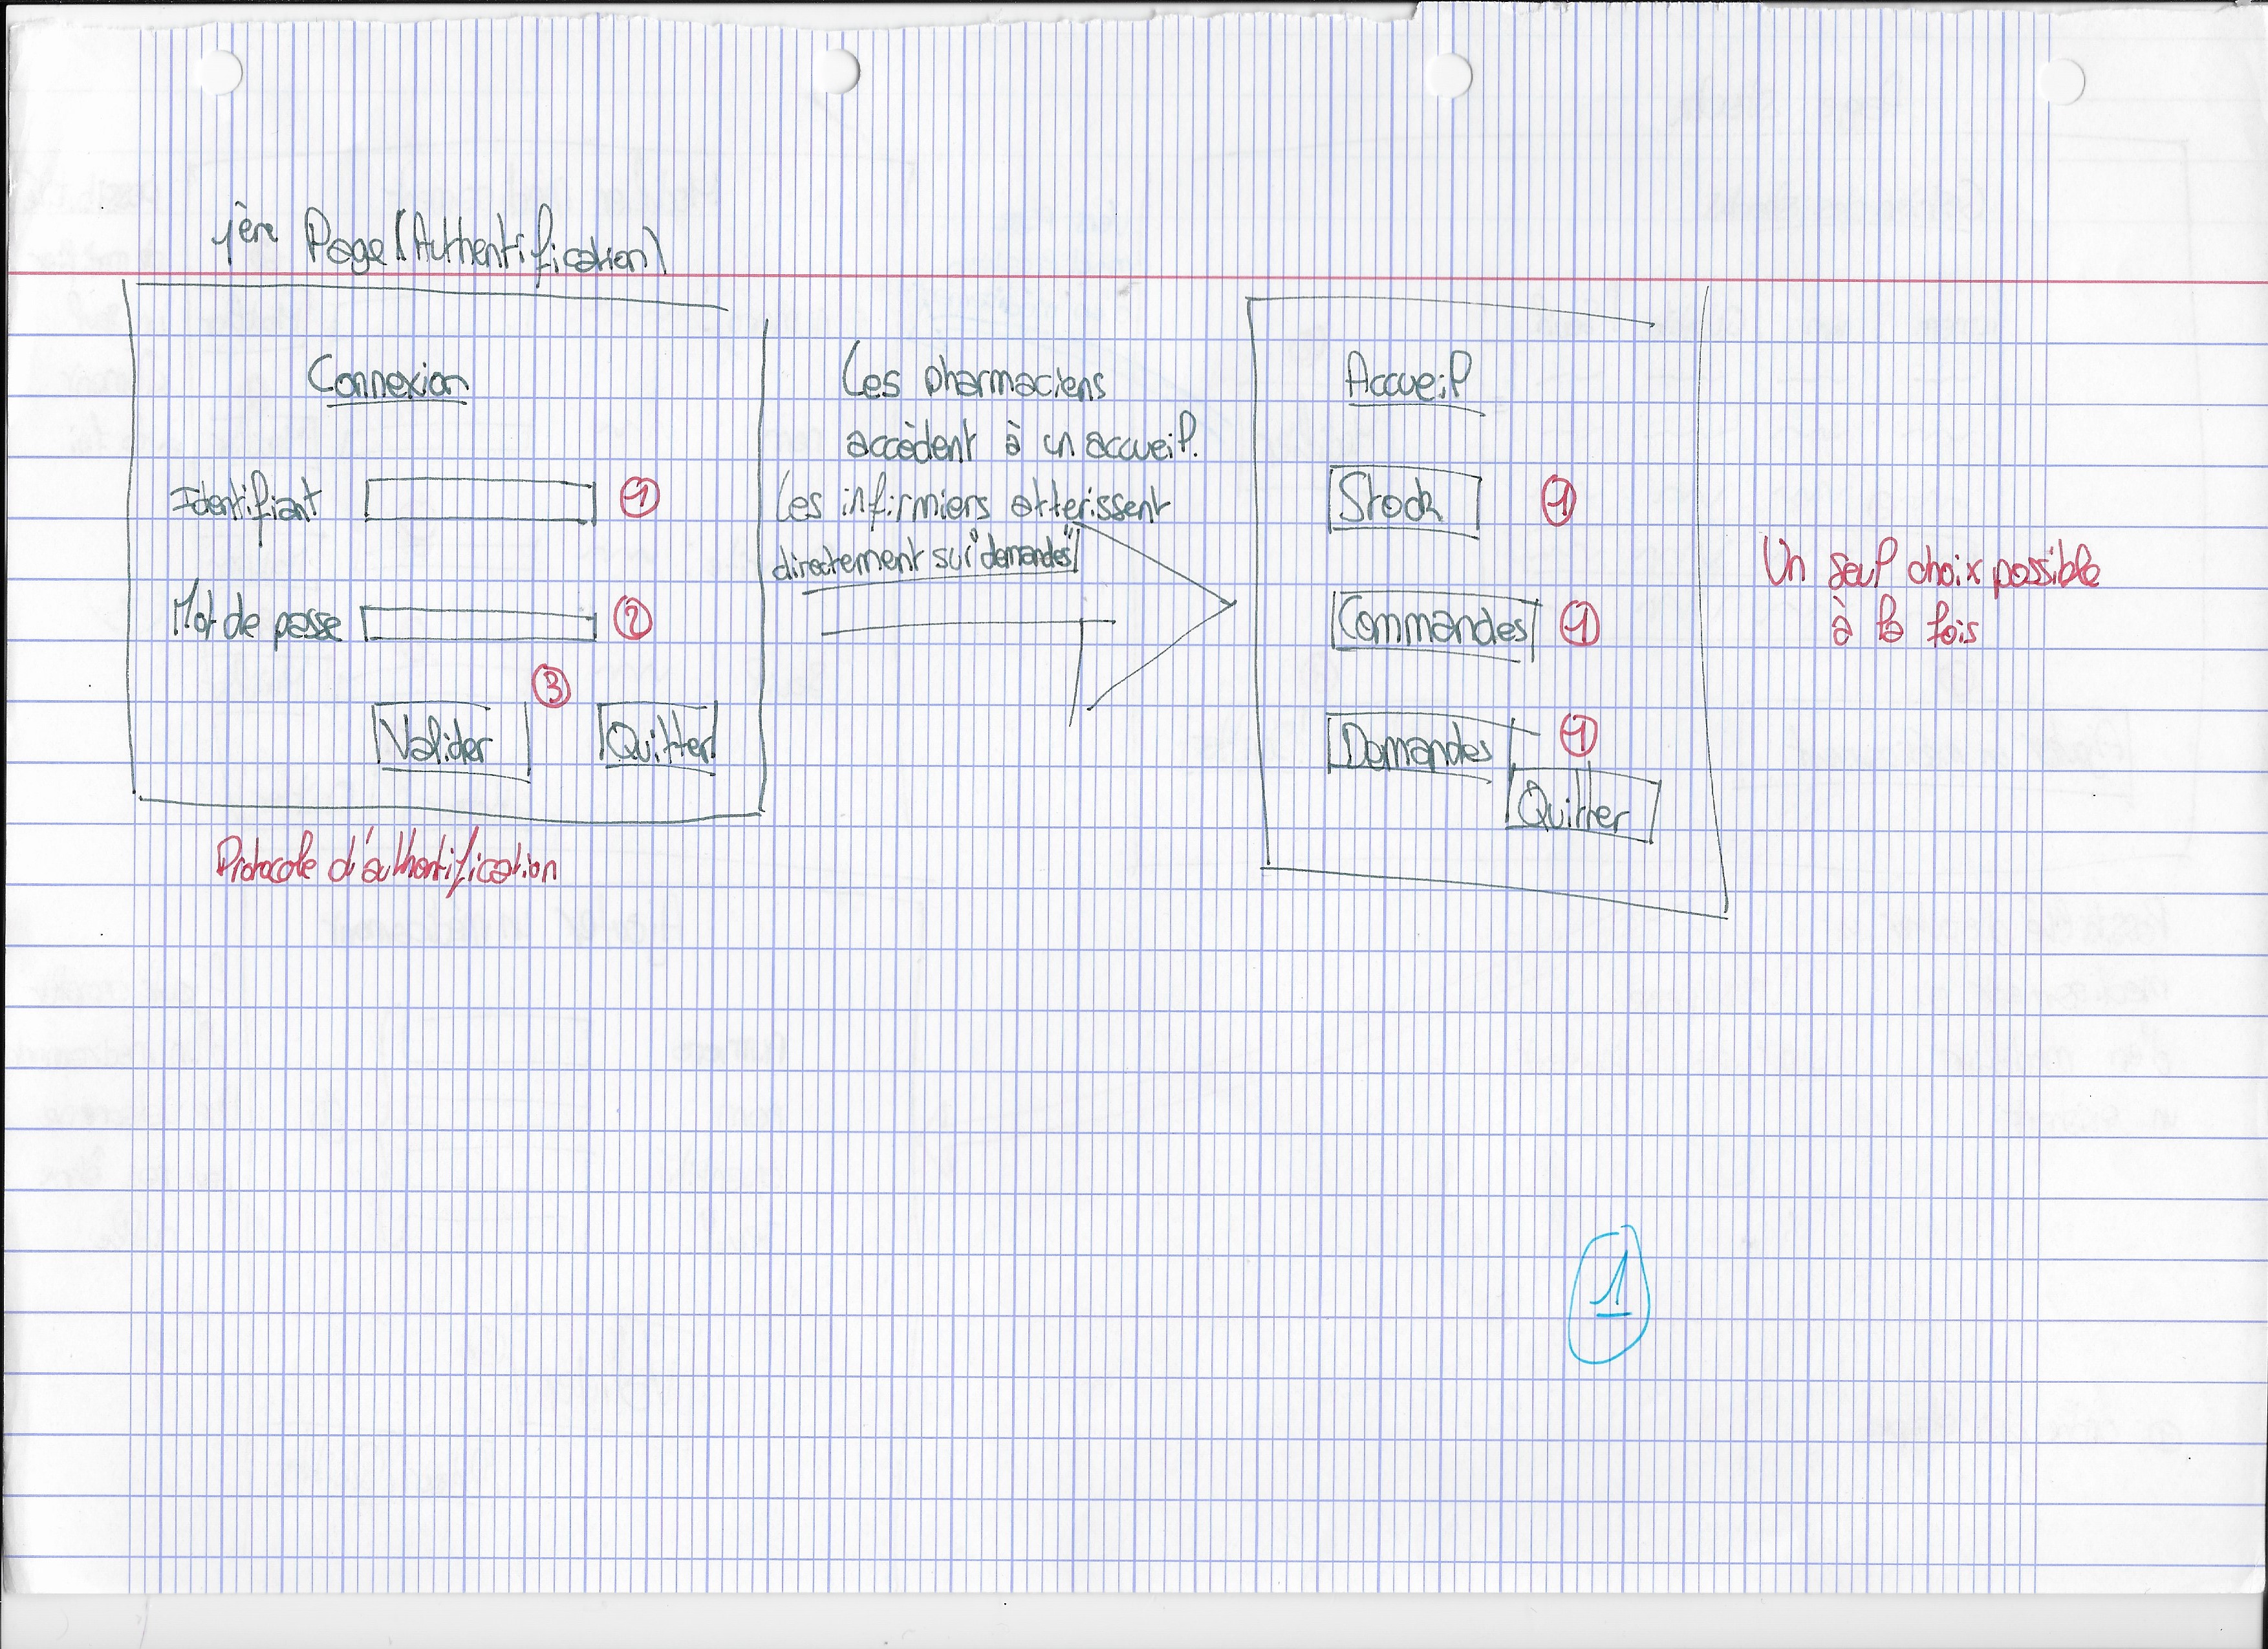 1ère Page (Authentification)
Connexion
Identifiant
1
Mot de passe
2
3
Valider
Quitter
Protocole d'authentification
Les pharmaciens
accèdent à un accueil.
Les infirmiers atterissent
directement sur "demandes"
Accueil
Stock
1
Commandes
1
Demandes
1
Quitter
Un seul choix possible
à la fois
1